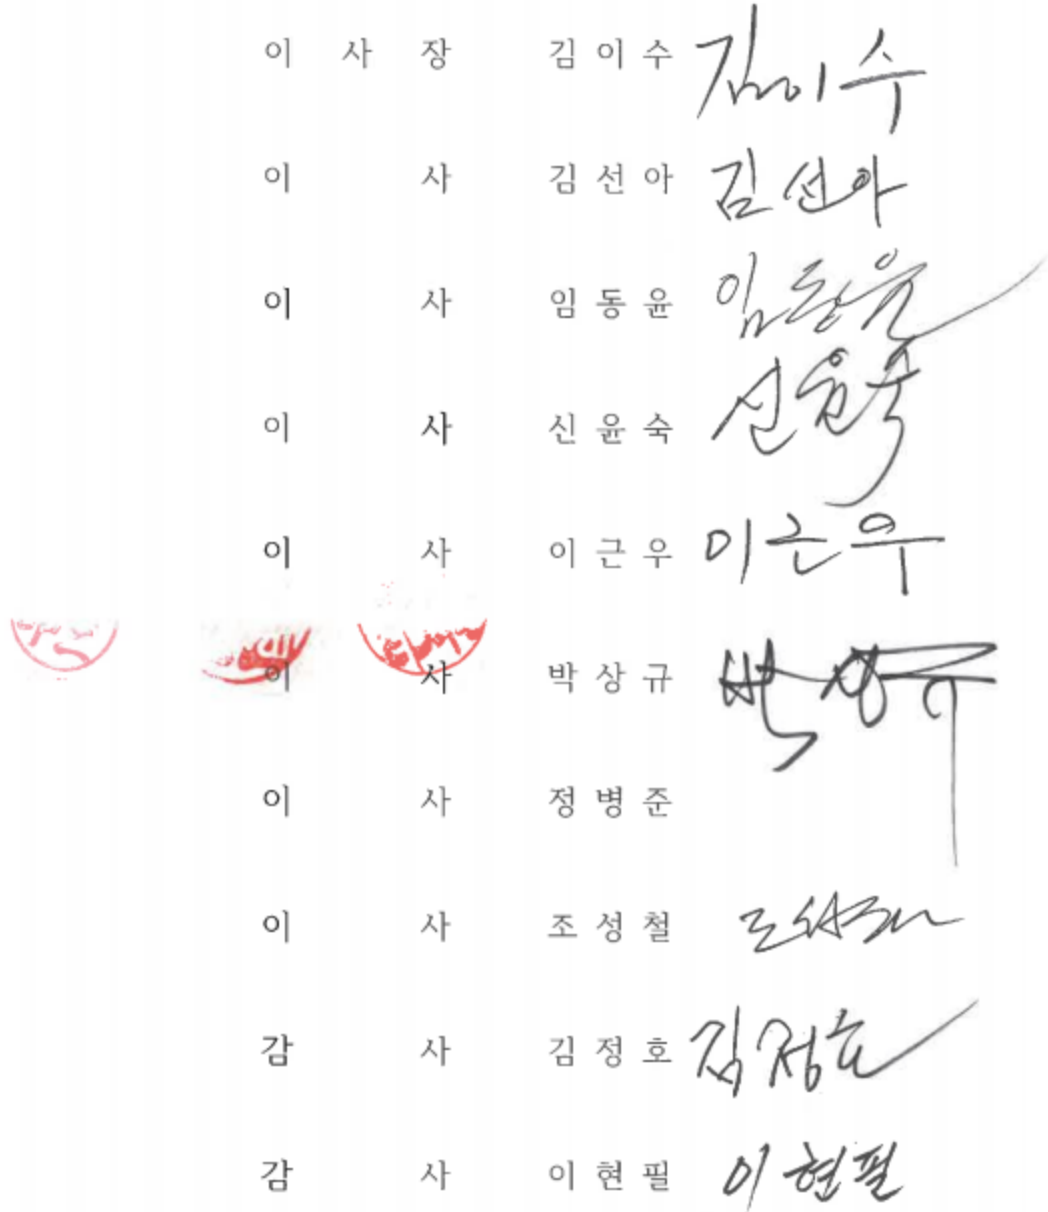 이 사 장 김 이 수 김이수
이 사 김 선 아 김선아
이 사 임 동 윤 임동윤
이 사 신 윤 숙 신윤숙
이 사 이 근 우 이근우
이 사 박 상 규 박상규
이 사 정 병 준
이 사 조 성 철 조성철
감 사 김 정 호 김정호
감 사 이 현 필 이현필